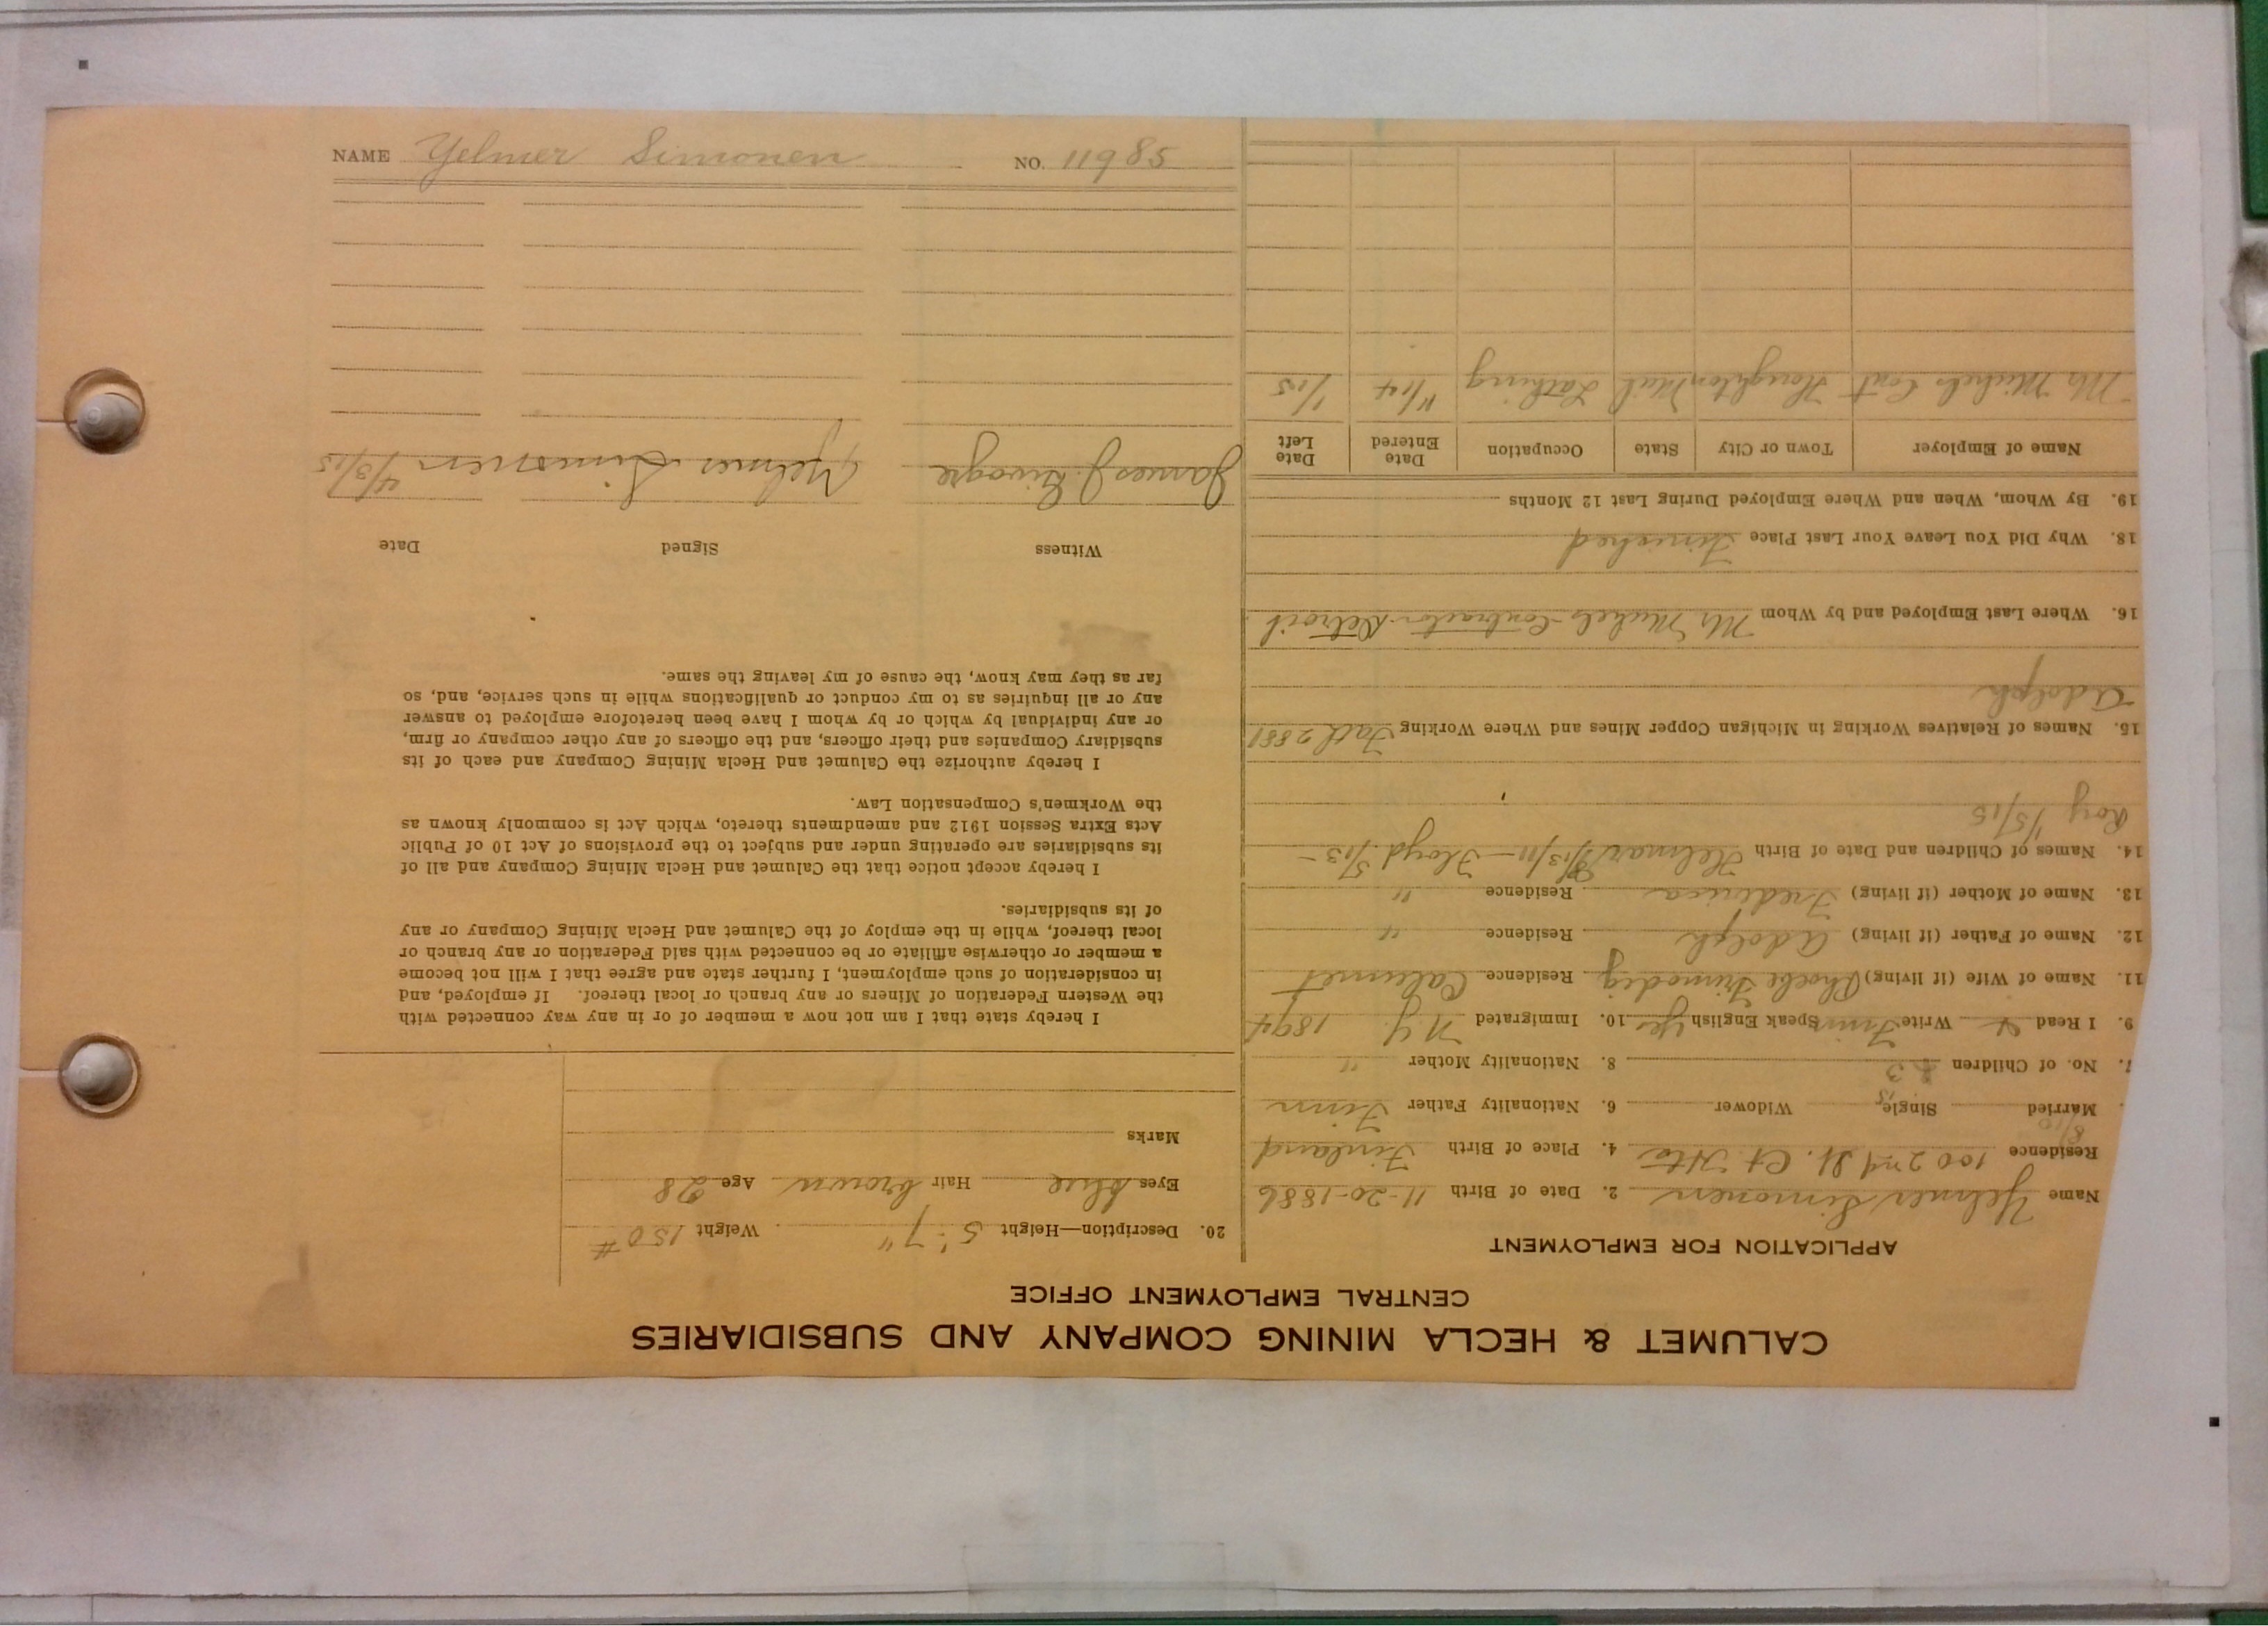 NAME Yelmer Simonen NO. 11985
CALUMET & HECLA MINING COMPANY AND SUBSIDIARIES
CENTRAL EMPLOYMENT OFFICE
APPLICATION FOR EMPLOYMENT
Name Yelmer Simonen 2. Date of Birth 11-20-1886
Residence 100 2nd St. 4. Place of Birth Finland
Married Single Widower 6. Nationality Father Finn
7. No. of Children 3 8. Nationality Mother "
9. I Read & Write Finn Speak English yes 10. Immigrated N.Y. 1894
11. Name of Wife (if living) Phoebe Residence Calumet
12. Name of Father (if living) Adolph Residence "
13. Name of Mother (if living) Fredericca Residence "
14. Names of Children and Date of Birth Helmar 8/13/11 - Floyd 5/13 -
Roy 1/5/15
15. Names of Relatives Working in Michigan Copper Mines and Where Working Fath 2881
Adolph
16. Where Last Employed and by Whom Mr Michels Contractor Detroit
18. Why Did You Leave Your Last Place Finished
19. By Whom, When and Where Employed During Last 12 Months
Name of Employer Town or City State Occupation Date Entered Date Left
Mr Michels Cont Houghton Mich Lathing 11/14 1/15
20. Description—Height 5' 7" Weight 150 #
Eyes blue Hair brown Age 28
Marks
I hereby state that I am not now a member of or in any way connected with
the Western Federation of Miners or any branch or local thereof. If employed, and
in consideration of such employment, I further state and agree that I will not become
a member or otherwise affiliate or be connected with said Federation or any branch or
local thereof, while in the employ of the Calumet and Hecla Mining Company or any
of its subsidiaries.
I hereby accept notice that the Calumet and Hecla Mining Company and all of
its subsidiaries are operating under and subject to the provisions of Act 10 of Public
Acts Extra Session 1912 and amendments thereto, which Act is commonly known as
the Workmen's Compensation Law.
I hereby authorize the Calumet and Hecla Mining Company and each of its
subsidiary Companies and their officers, and the officers of any other company or firm,
or any individual by which or by whom I have been heretofore employed to answer
any or all inquiries as to my conduct or qualifications while in such service, and, so
far as they may know, the cause of my leaving the same.
Witness Signed Date
James J. Yelmer Simonen 4/3/15